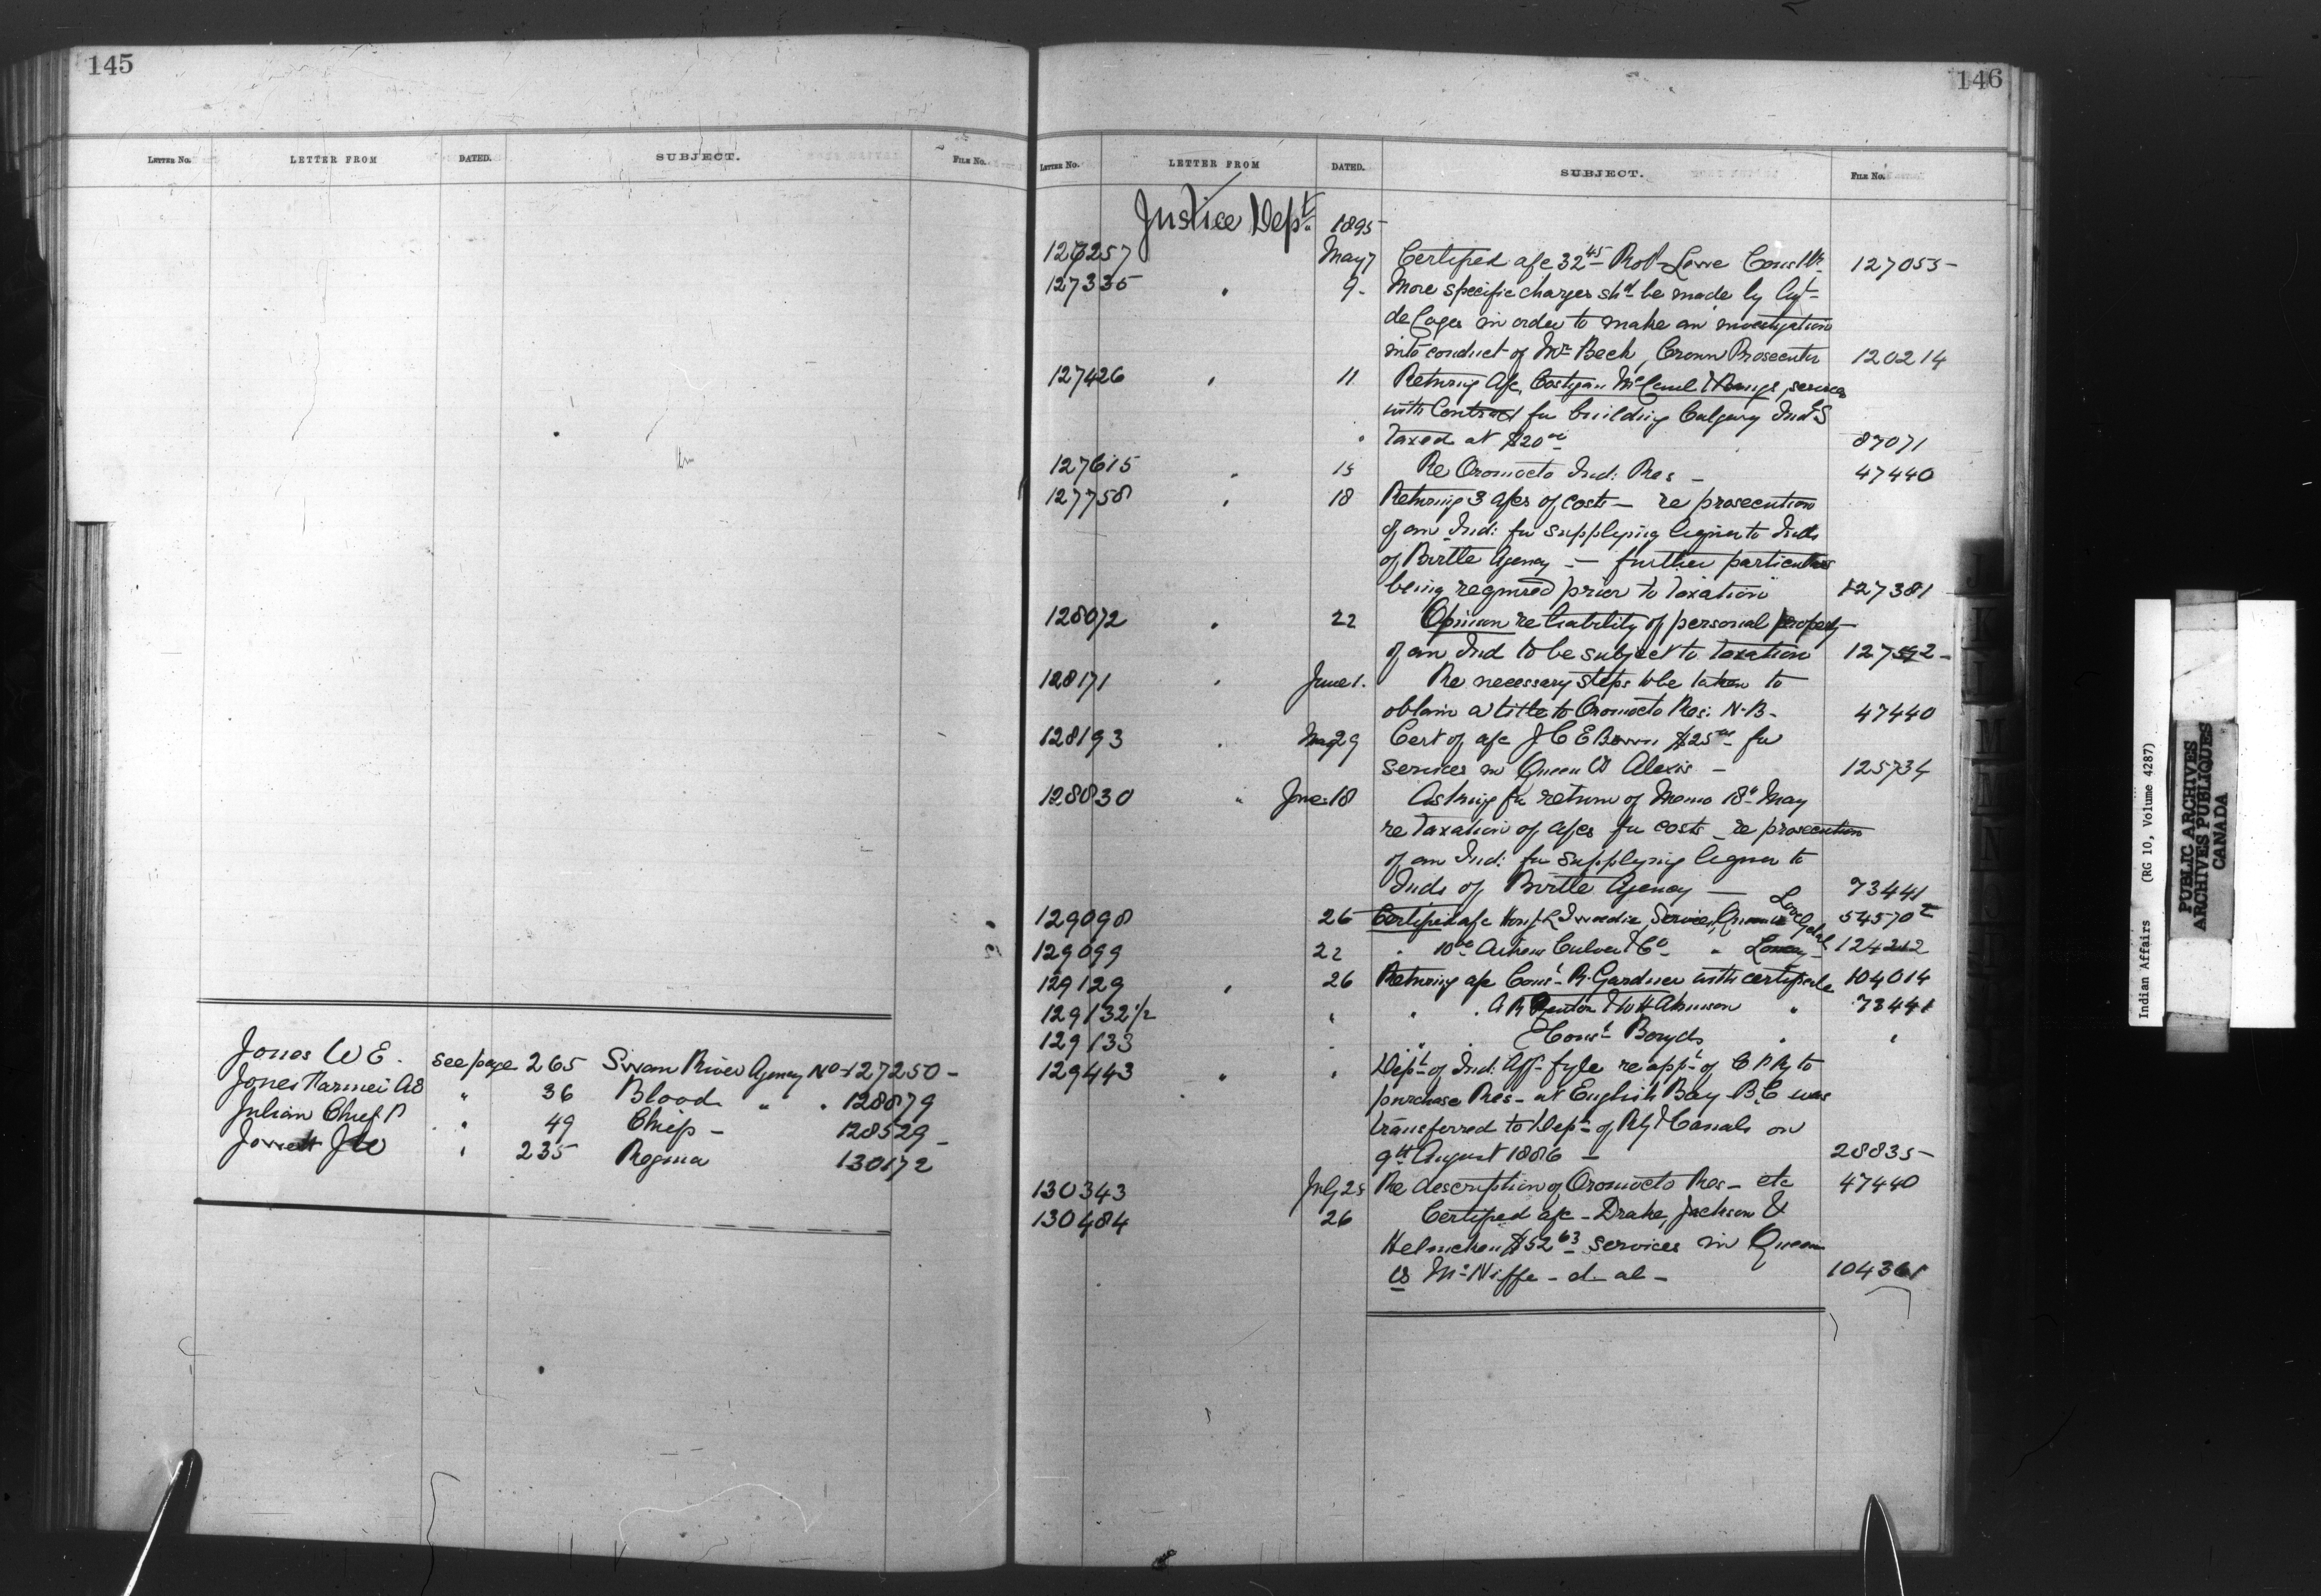 145
LETTER No. LETTER FROM DATED. SUBJECT. FILE No.
Jones W E. see page 265 Swan River Agency No 127250 -
Jones A8 " 36 Blood " " 128879
Julian Chief P " 49 Chief - 128529 -
Jowett J W " 235 Regina 130172
146
LETTER No. LETTER FROM DATED. SUBJECT. FILE No.
Justice Dept. 1895
126257 May 7 Certified a/c 32 45 Robt Lowe 127055 -
127335 " 9 - More specific charges shd be made by Agt
de Cazes in order to make an investigation
into conduct of Mr Beck, Crown Prosecutor 120214
127426 " 11 Returning a/c, Costigan McCaul & Bangs, services
with Contract for building Calgary Ind S
" Taxed at $20 00 87071
127615 " 15 Re Oromocto Ind: Res - 47440
127758 " 18 Returning 3 a/cs of costs - re prosecution
of an Ind: for supplying liquor to Inds
of Birtle Agency - further particulars
being required prior to Taxation 127381
128072 " 22 Opinion re liability of personal property
of an Ind to be subject to taxation
128171 " June 1. Re necessary steps to be taken to
obtain a title to Oromocto Res: N.B. 47440
128193 " May 29 Cert of a/c J C E Bown $25 00 for
services in Queen vs Alexis - 125734
128830 " June 18 Asking for return of Memo 18th May
re Taxation of a/cs for costs - re prosecution
of an Ind: for supplying liquor to
Inds of Birtle Agency - 73441
129098 26 Certified a/c Hon J. L Tweedie, Services, Queen vs 54570
129099 22 " 10 00 Aikens Culver & Co " 124212
129129 " 26 Returning a/c Const R. Gardner with certificate 104014
129132 1/2 " " " & W H Atkinson " 73441
129133 " " " Const Boryds " "
129443 " " Dept of Ind: Aff - fyle re appt of C P Ry to
purchase Res - at English Bay B.C was
transferred to Dept of Rly & Canals on
9th August 1886 - 28835 -
130343 July 25 Re description of Oromocto Res - etc 47440
130484 26 Certified a/c - Drake, Jackson &
Helmcken $52 63 services in Queen
vs - et al - 104361
Indian Affairs (RG 10, Volume 4287)
PUBLIC ARCHIVES
ARCHIVES PUBLIQUES
CANADA